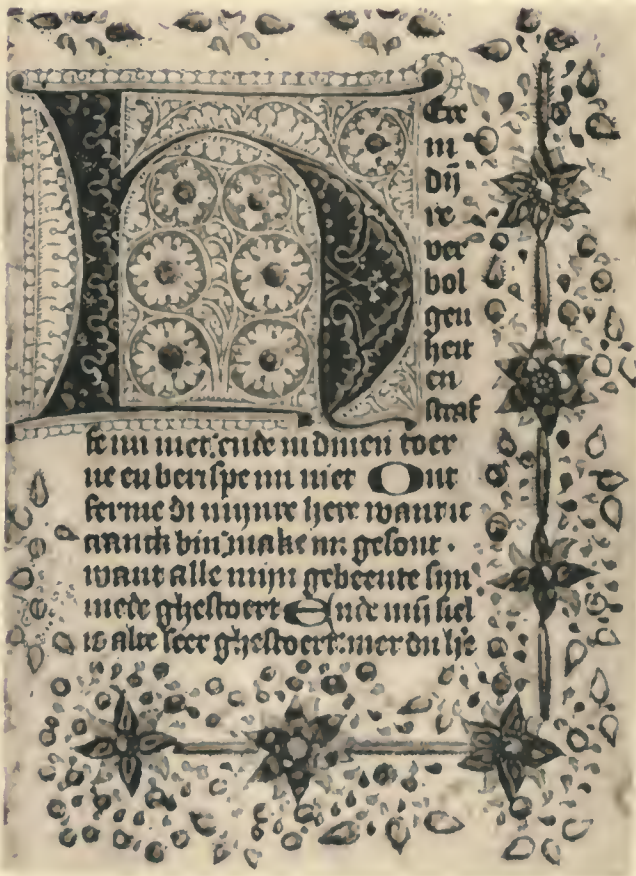 HEre
in
dij
re
ver
bol
gen
heit
en
straf
fe mi niet: ende in dinen toer
ne en berispe mi niet Ont
ferme di mijnre here want ic
cranck bin, make mi gesont .
want alle mijn gebeente sijn
mede ghestoert Ende mijn siel
is alte seer ghestoert: mer du he